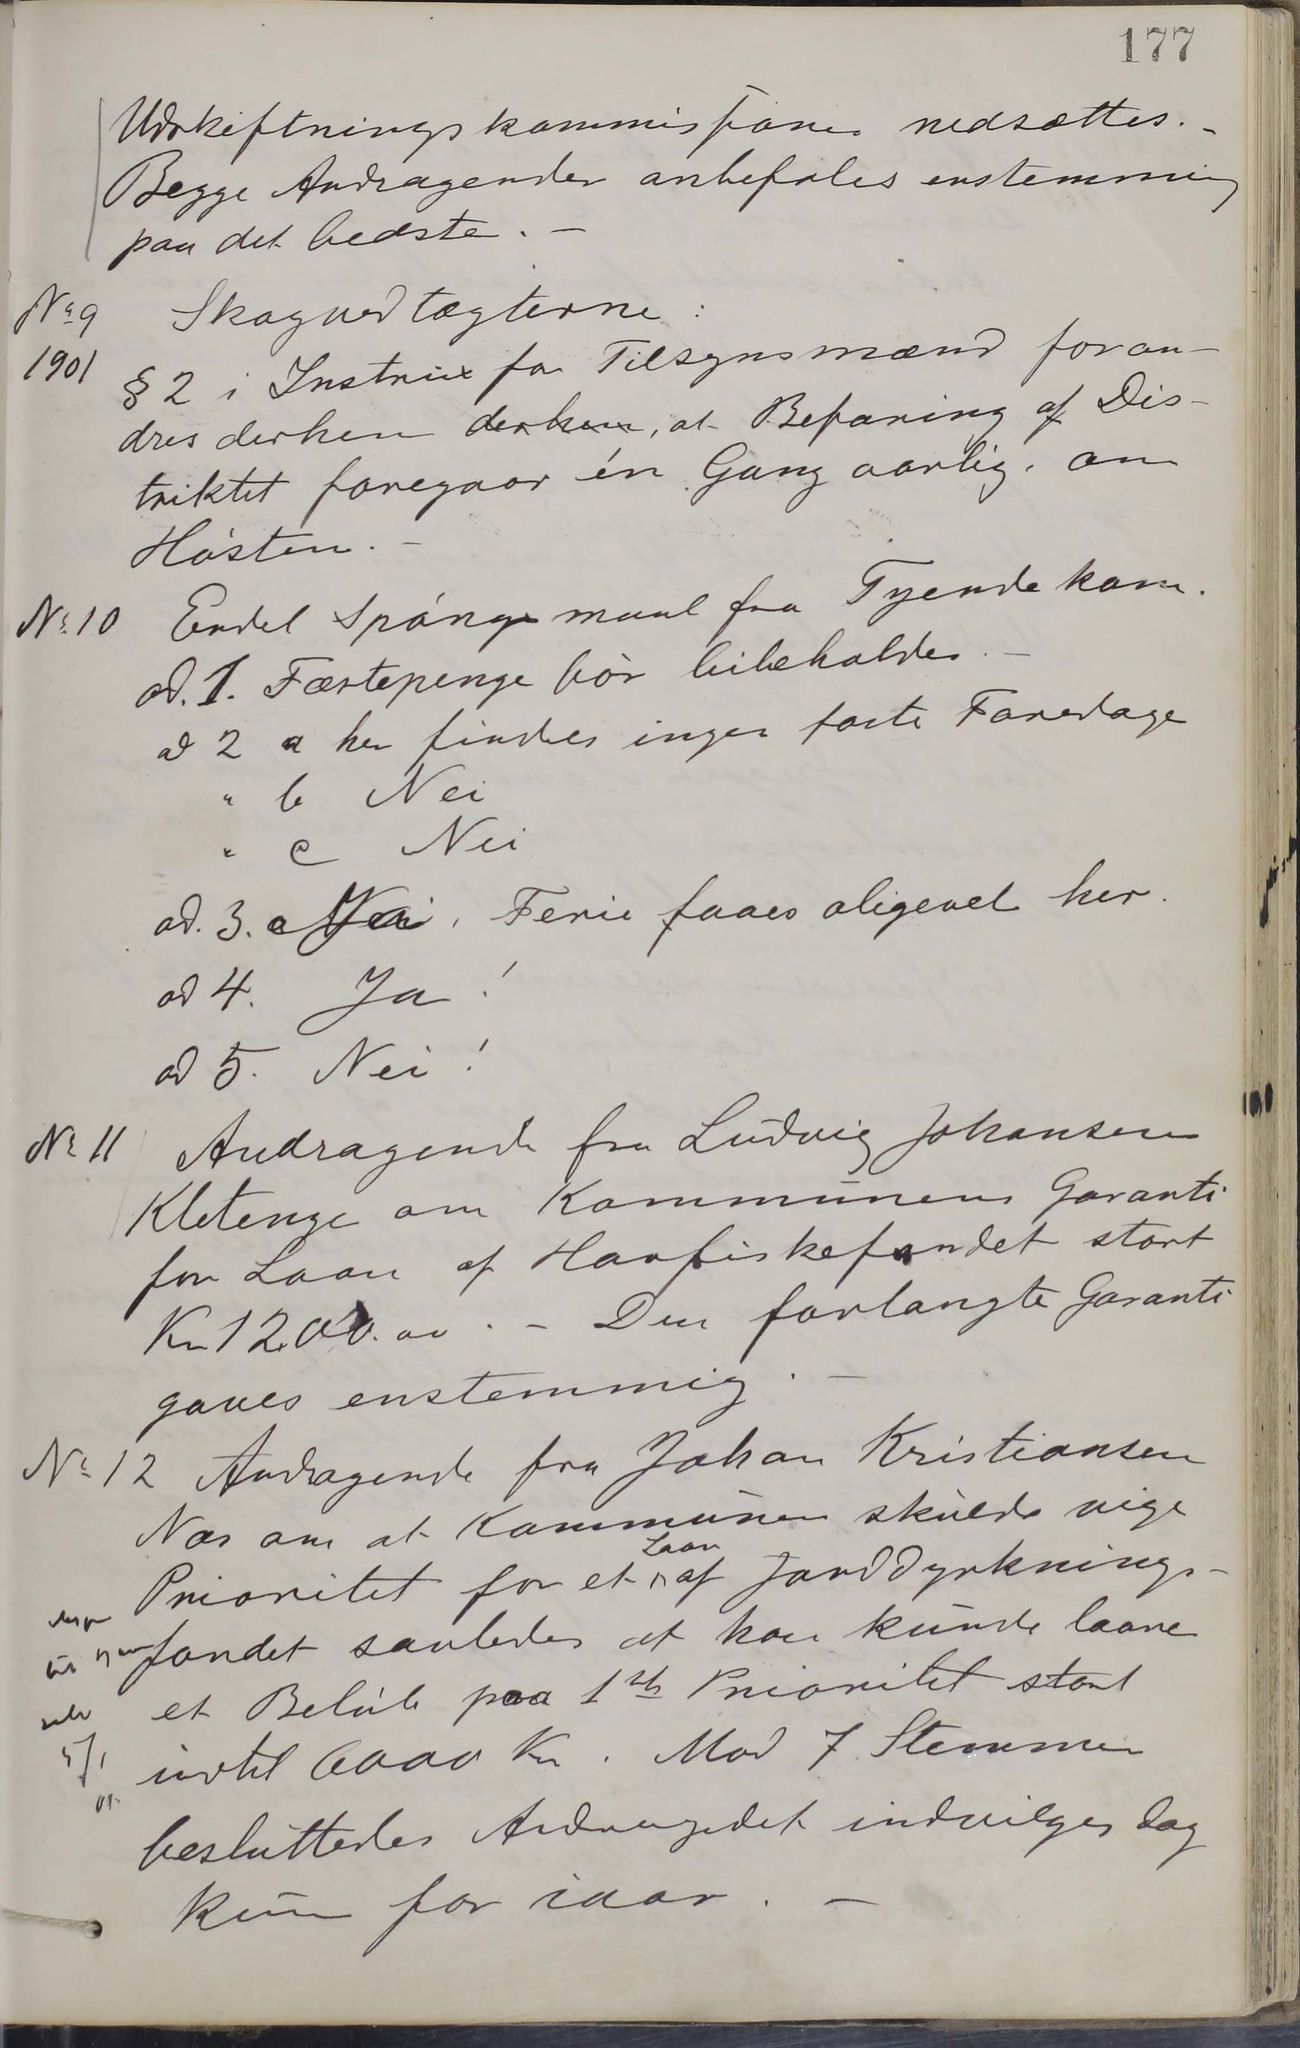 177
Udskiftningskommissioner nedsættes. -
Begge Andragender anbefales enstemmig
paa det bedste. -
No 9 Skogvedtægterne:
1901
§ 2 i Instrux for Tilsynsmænd foran-
dres derhen derhen, at Befaring af Dis-
triktet foregaar én Gang aarlig, om
Hösten. -
No 10 Endel Spörgsmaal fra Tyendekom.
ad. 1. Fæstepenge bör bibeholdes. -
ad 2 a her findes ingen faste Faredage
" b Nei
" c Nei
ad. 3. a Nei, Ferie faaes aligevel her.
ad 4. Ja!
ad 5. Nei!
No 11 Andragende fra Ludvig Johansen
Kletenge om Kommunens Garanti
for Laan af Havfiskefondet stort
Kr 1200.00. - Den forlangte Garanti
gaves enstemmig. -
No 12 Andragende fra Johan Kristiansen
Næs om at Kommunen skulde vige
Prioritet for et Laan af Jorddyrknings-
fondet saaledes at han kunde laane
et Belöb paa 1ste Prioritet stort
indtil 6000 Kr. Mod 7 Stemmer
besluttedes Andragedet indvilges dog
kun for iaar. -
5/1
01.